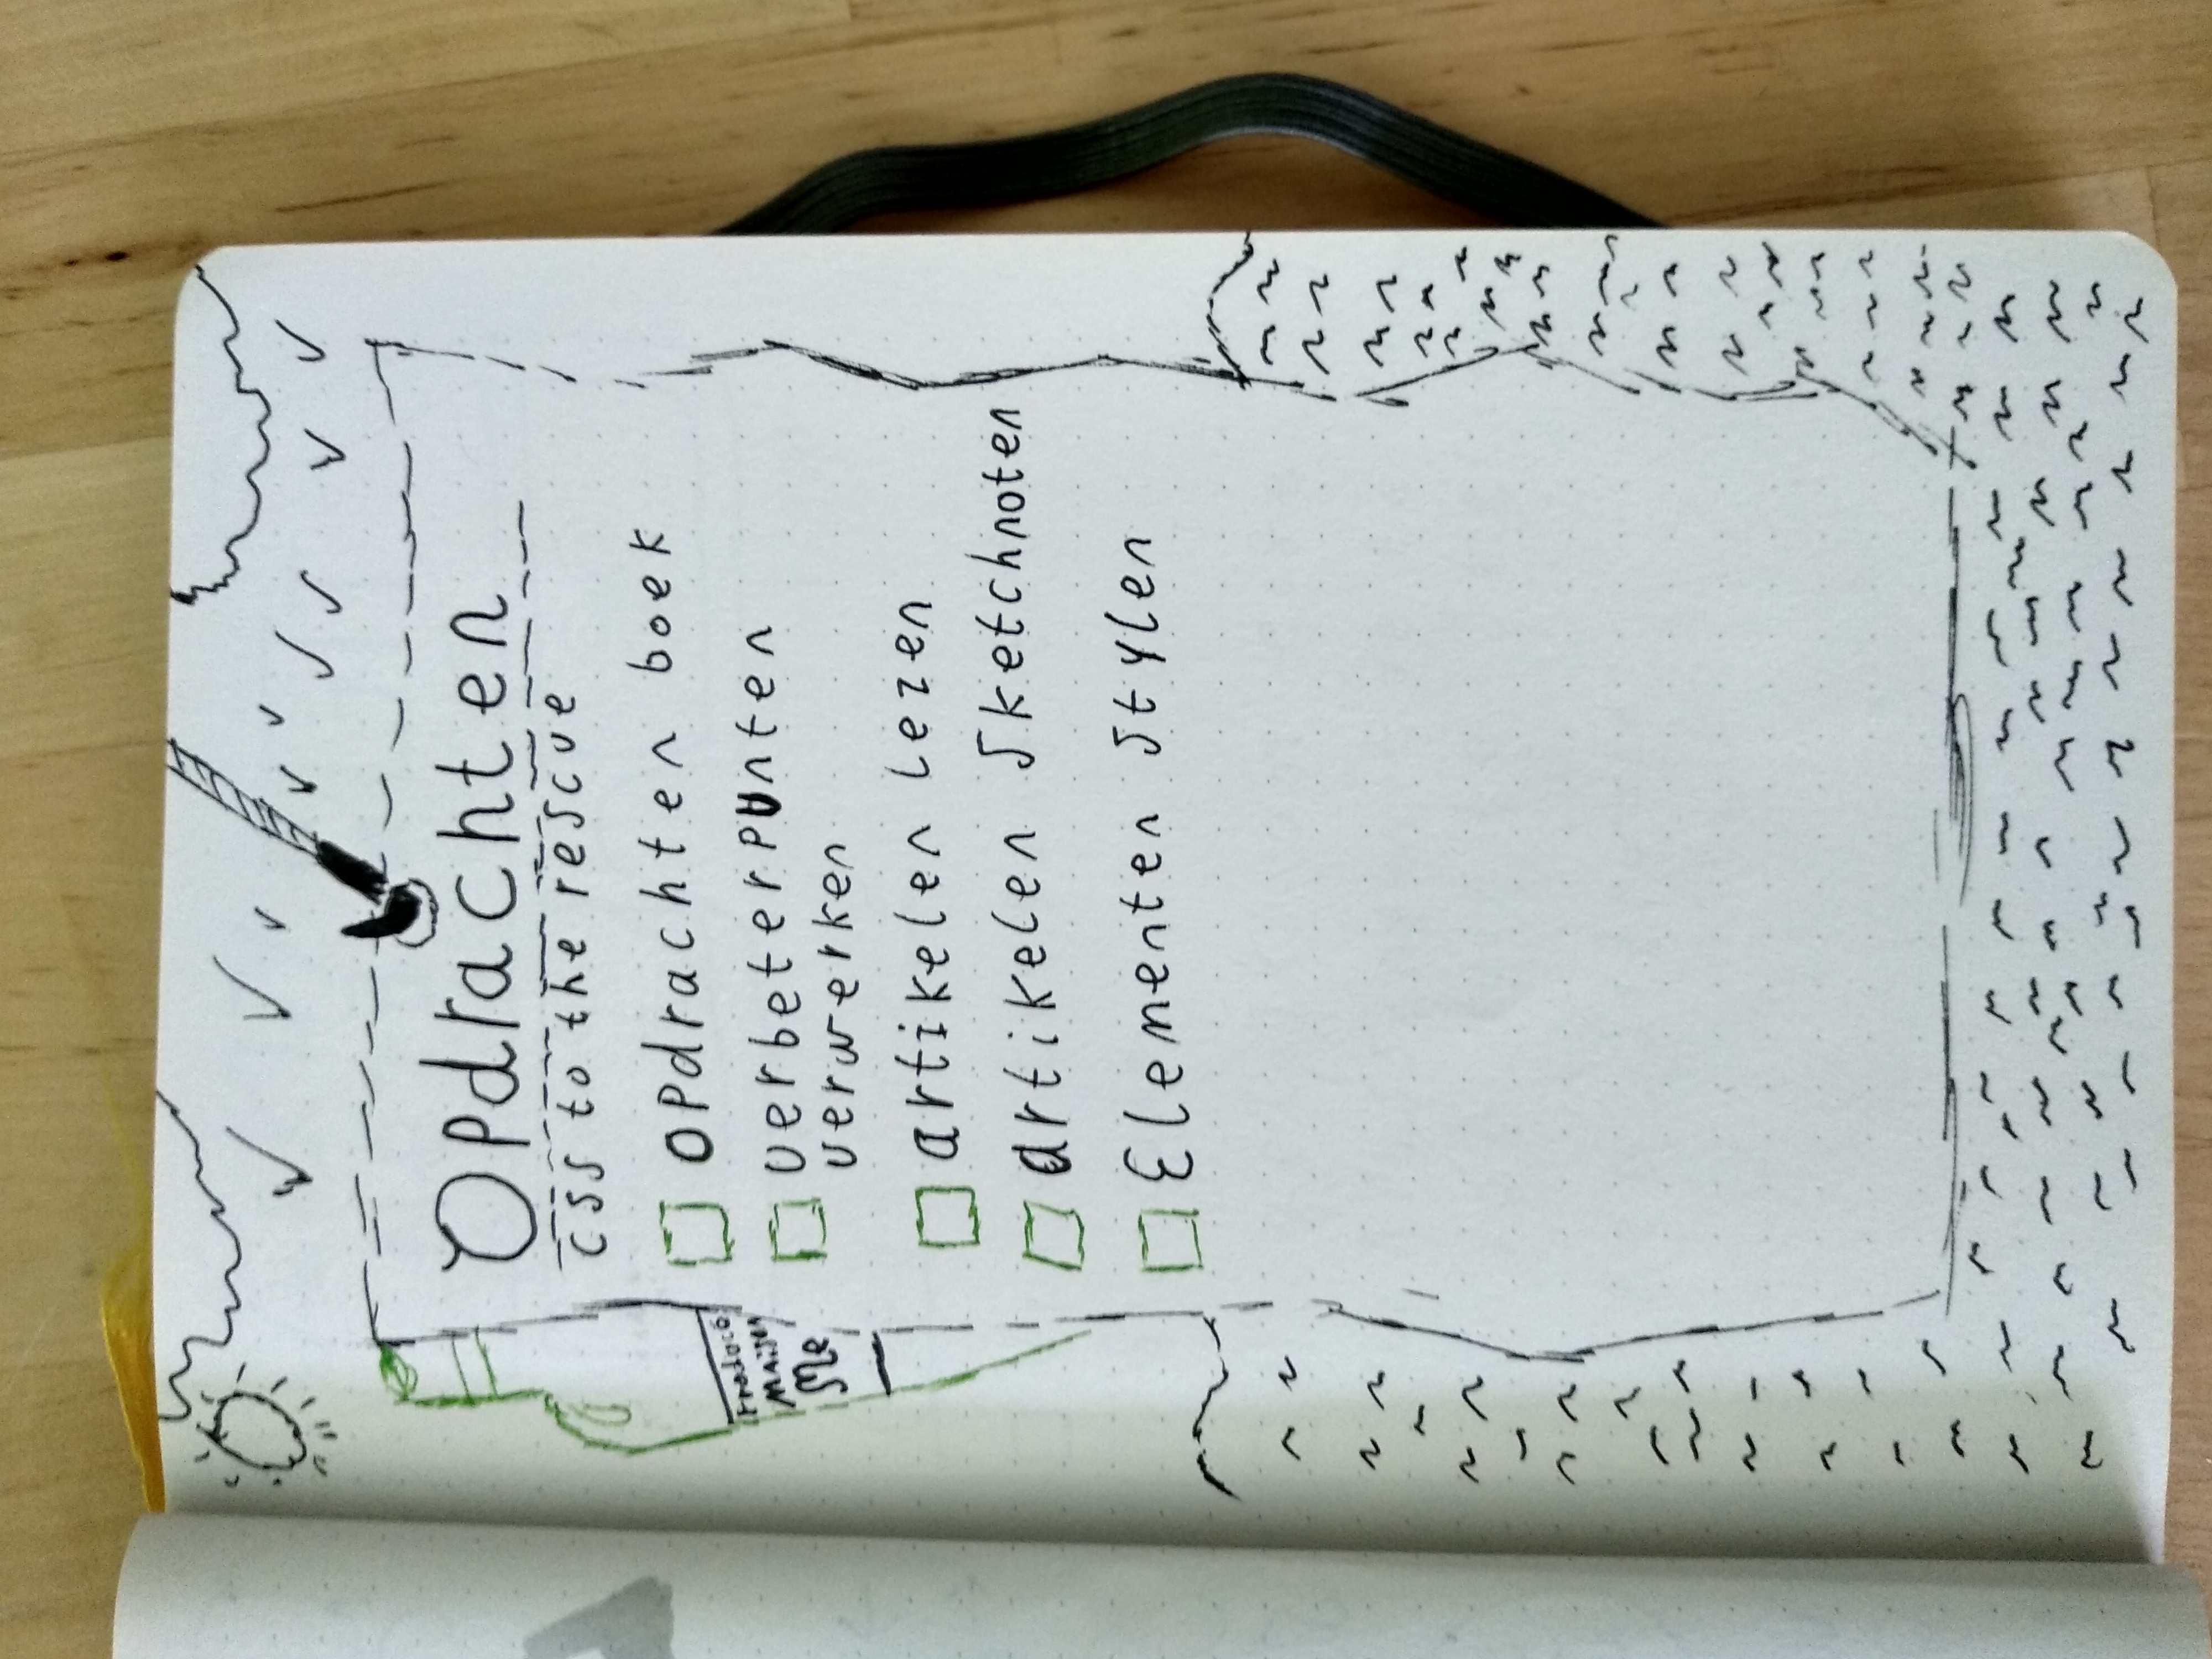 Opdrachten
css to the rescue
opdrachten boek
verbeterpunten
verwerken
artikelen lezen
artikelen sketchnoten
Elementen stylen
Me